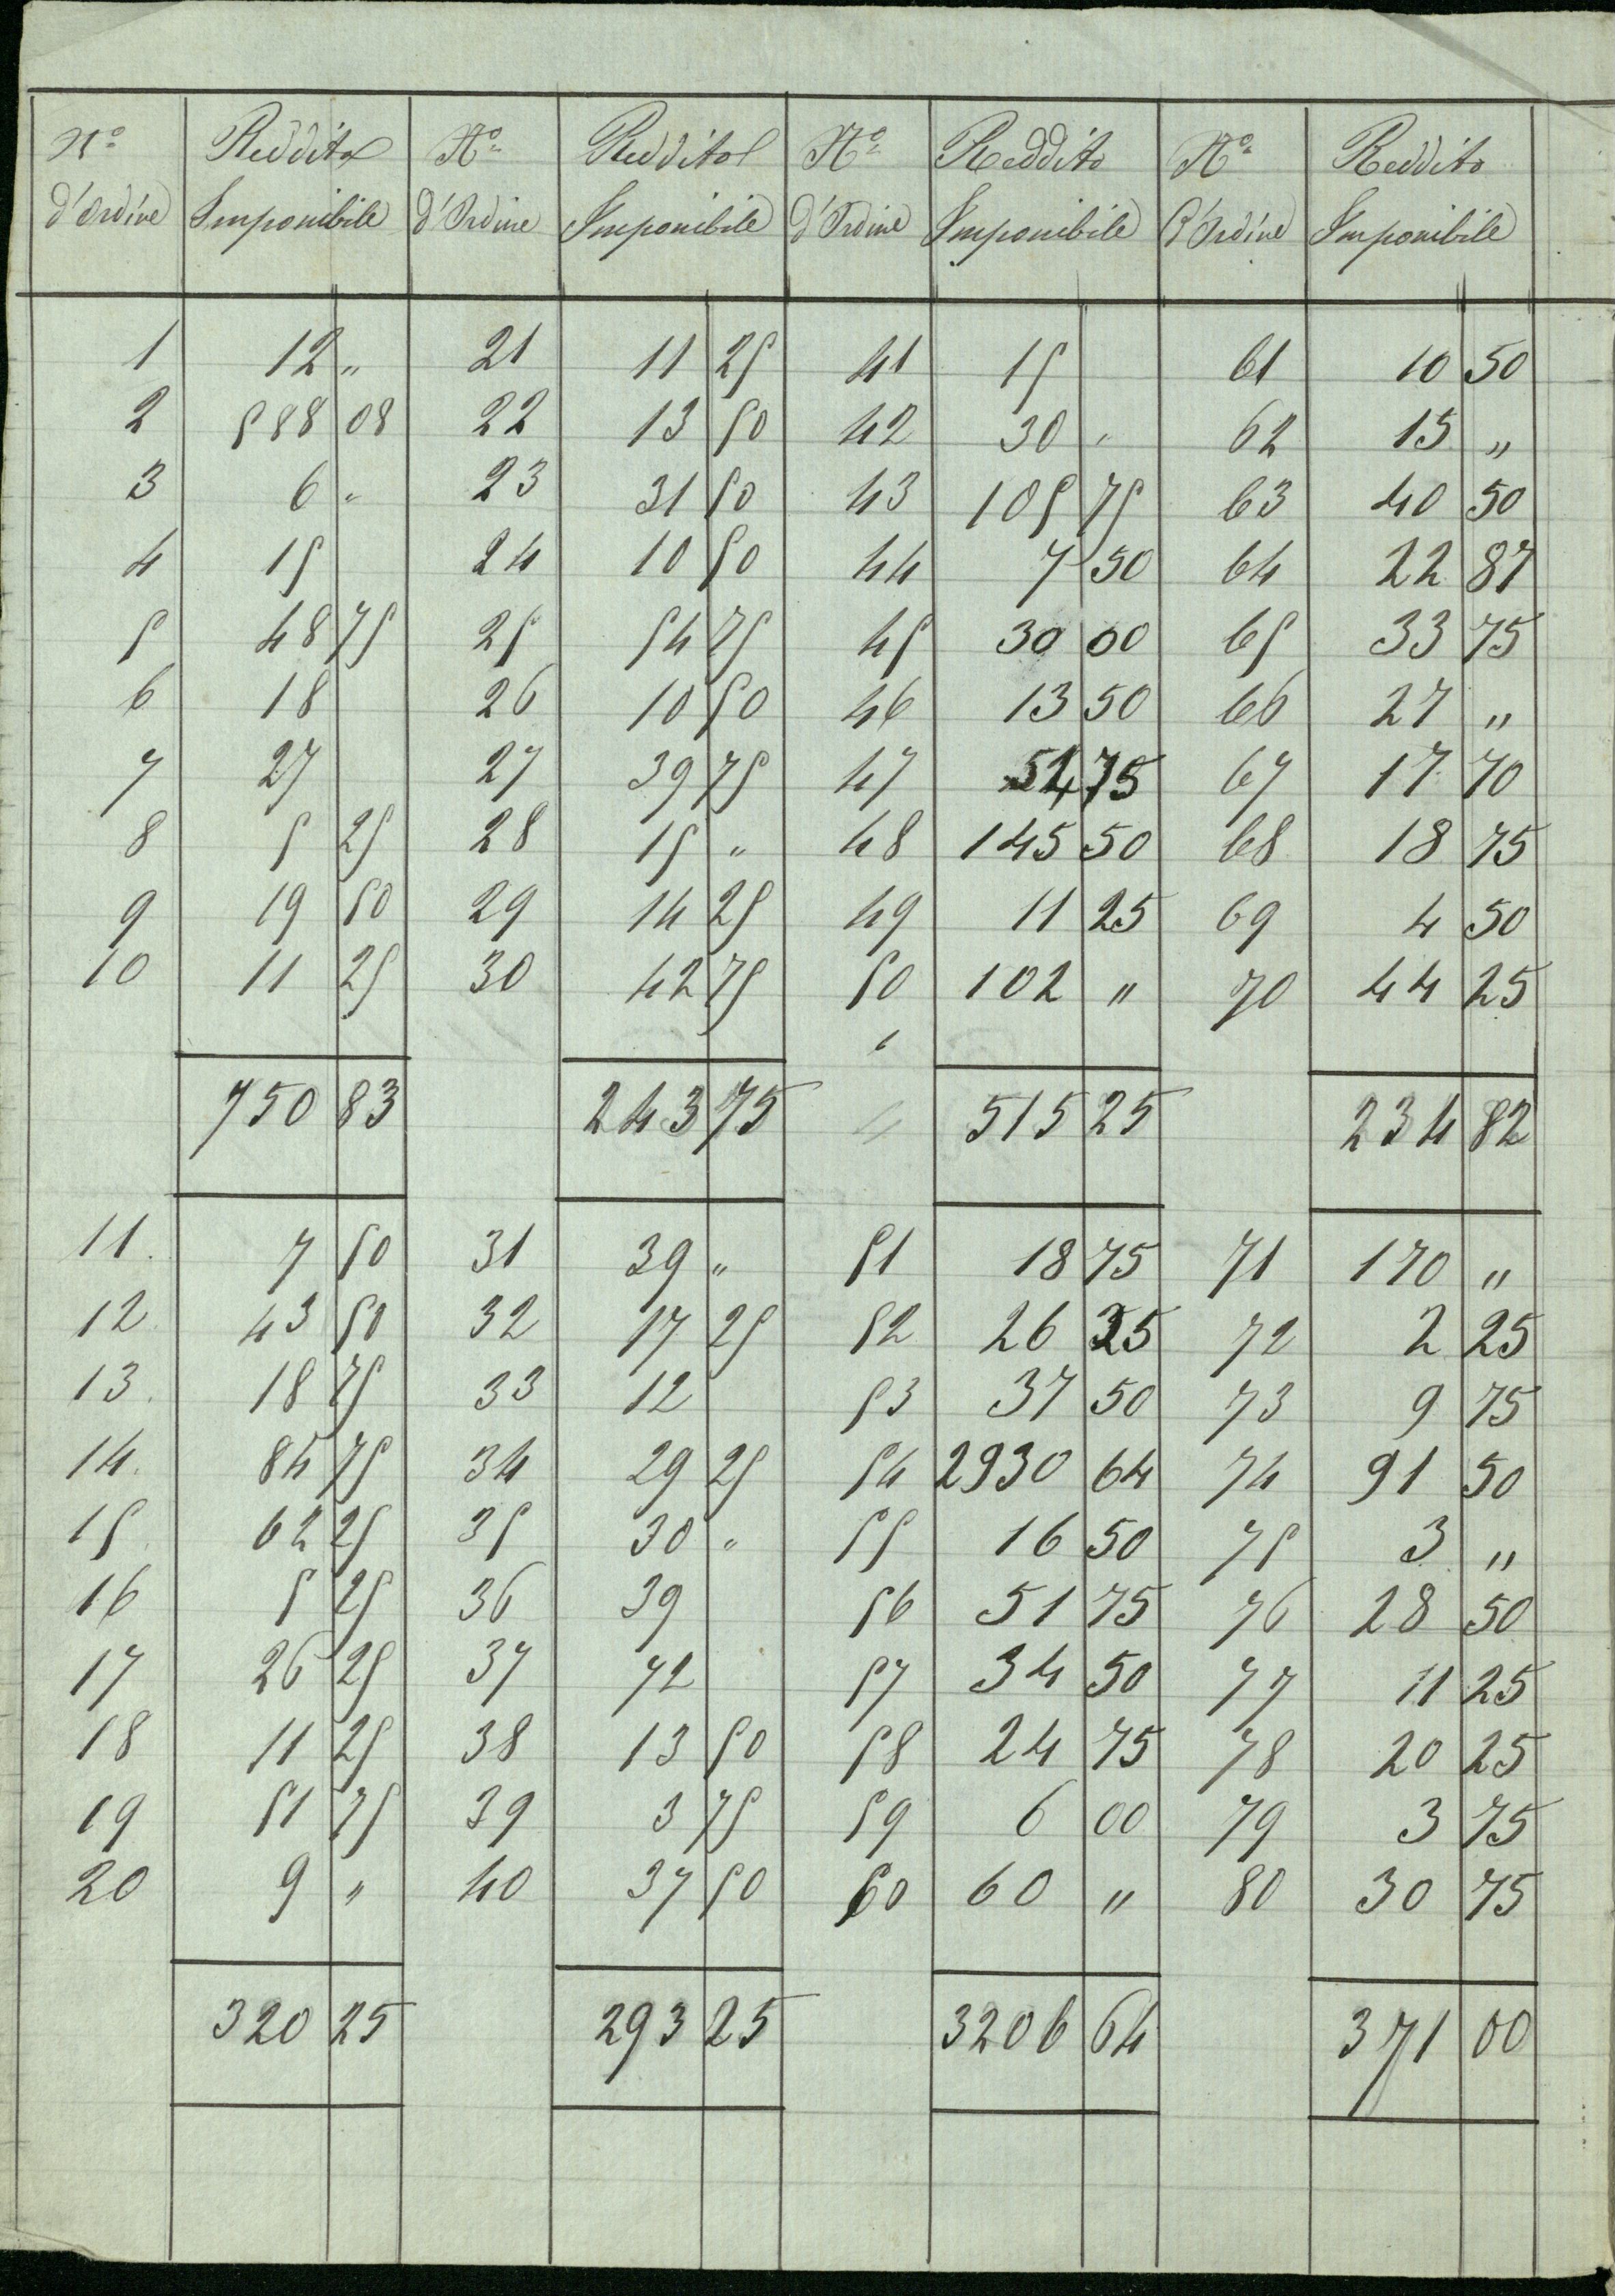 Nº Reddito Nº Reddito Nº Reddito Nº Reddito
d'Ordine Imponibile d'Ordine Imponibile d'Ordine Imponibile d'Ordine Imponibile
1 12 " 21 11 25 41 15 61 10 50
2 588 08 22 13 50 42 30 " 62 15 "
3 6 " 23 31 50 43 105 75 63 40 50
4 15 24 10 50 44 7 50 64 22 87
5 48 75 25 54 75 45 30 00 65 33 75
6 18 26 10 50 46 13 50 66 27 "
7 27 27 39 75 47 54 75 67 17 70
8 5 25 28 15 " 48 145 50 68 18 75
9 19 50 29 14 25 49 11 25 69 4 50
10 11 25 30 42 75 50 102 " 70 44 25
750 83 243 75 515 25 234 82
11. 7 50 31 39 " 51 18 75 71 170 "
12 43 50 32 17 25 52 26 25 72 2 25
13. 18 75 33 12 53 37 50 73 9 75
14. 84 75 34 29 25 54 2930 64 74 91 50
15 62 25 35 30 " 55 16 50 75 3 "
16 5 25 36 39 56 51 75 76 28 50
17 26 25 37 72 57 34 50 77 11 25
18 11 25 38 13 50 58 24 75 78 20 25
19 51 75 39 3 75 59 6 00 79 3 75
20 9 " 40 37 50 60 60 " 80 30 75
320 25 293 25 3206 64 371 00